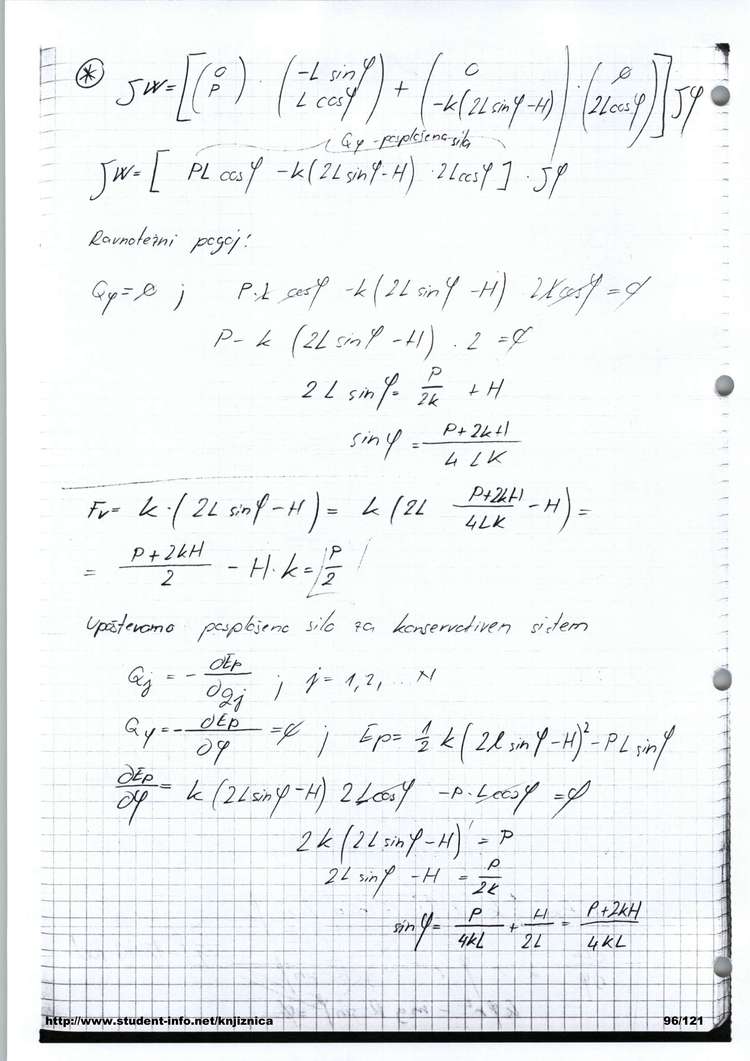 * δW = [ (0 P) · (-L sinφ L cosφ) + (0 -k(2L sinφ-H)) · (0 2L cosφ) ] δφ
Qφ - posplošena sila
δW = [ PL cosφ - k(2L sinφ-H) · 2L cosφ ] · δφ
Ravnotežni pogoj:
Qφ = 0 ; P·L cosφ - k(2L sinφ - H) 2L cosφ = 0
P - k (2L sinφ - H) · 2 = 0
2L sinφ = P/2k + H
sinφ = (P+2kH)/4LK
Fv = k·(2L sinφ - H) = k (2L (P+2kH)/4LK - H) =
= (P+2kH)/2 - H·k = P/2
Upoštevamo posplošeno silo za konservativen sistem
Qj = - ∂Ep/∂qj ; j = 1, 2, ... N
Qφ = - ∂Ep/∂φ = 0 ; Ep = 1/2 k (2L sinφ - H)² - PL sinφ
∂Ep/∂φ = k (2L sinφ - H) 2L cosφ - P·L cosφ = 0
2k (2L sinφ - H) = P
2L sinφ - H = P/2k
sinφ = P/4kL + H/2L = (P+2kH)/4kL
http://www.student-info.net/knjiznica 96/121